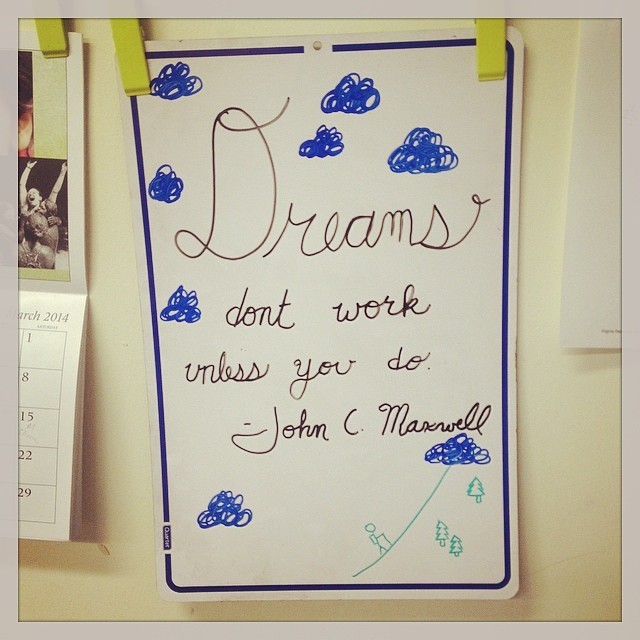 Dreams
dont work
unless you do.
- John C. Maxwell
Quartet
arch 2014
SATURDAY
1
8
15
22
29